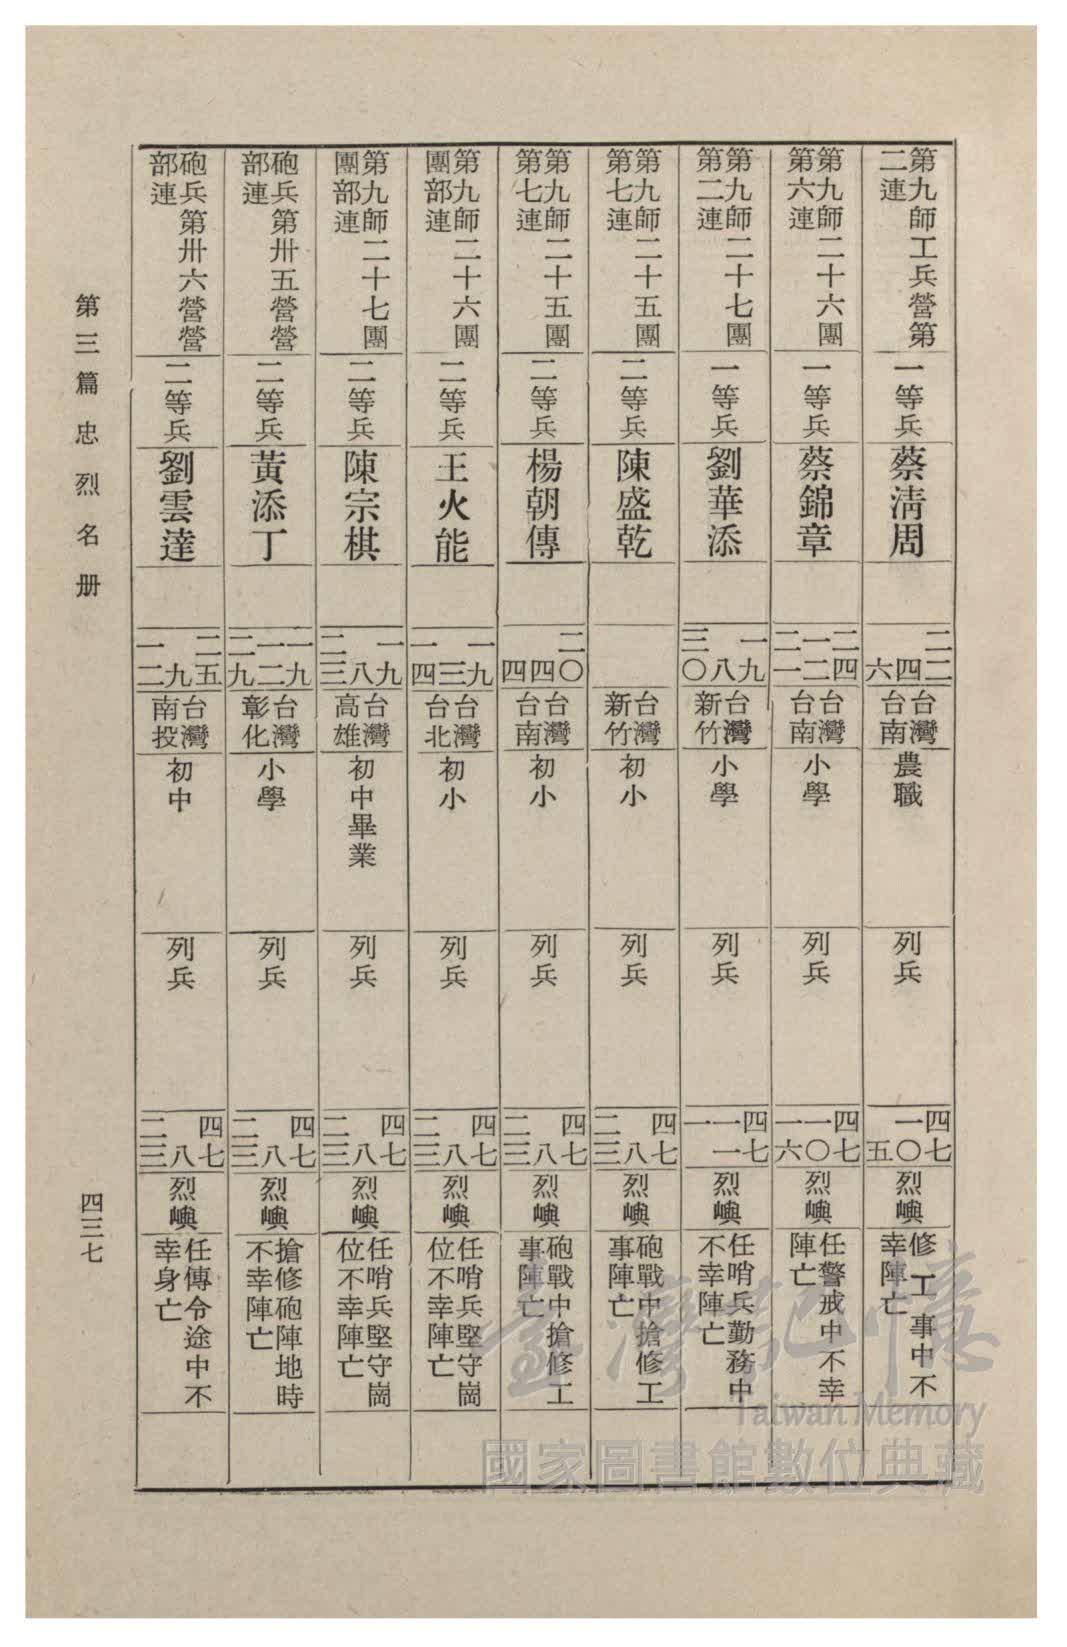 第九師工兵營第
二連
一等兵
蔡淸周
二二
四
六
台灣
台南
農職
列兵
四七
一〇
五
烈嶼
修工事中不
幸陣亡
第九師二十六團
第六連
一等兵
蔡錦章
二四
一二
二一
台灣
台南
小學
列兵
四七
一〇
一六
烈嶼
任警戒中不幸
陣亡
第九師二十七團
第二連
一等兵
劉華添
一九
八
三〇
台灣
新竹
小學
列兵
四七
一一
一
烈嶼
任哨兵勤務中
不幸陣亡
第九師二十五團
第七連
二等兵
陳盛乾
台灣
新竹
初小
列兵
四七
八
二三
烈嶼
砲戰中搶修工
事陣亡
第九師二十五團
第七連
二等兵
楊朝傳
二〇
四
四
台灣
台南
初小
列兵
四七
八
二三
烈嶼
砲戰中搶修工
事陣亡
第九師二十六團
團部連
二等兵
王火能
一九
三
一四
台灣
台北
初小
列兵
四七
八
二三
烈嶼
任哨兵堅守崗
位不幸陣亡
第九師二十七團
團部連
二等兵
陳宗棋
一九
八
二三
台灣
高雄
初中畢業
列兵
四七
八
二三
烈嶼
任哨兵堅守崗
位不幸陣亡
砲兵第卅五營營
部連
二等兵
黃添丁
一九
一二
二九
台灣
彰化
小學
列兵
四七
八
二三
烈嶼
搶修砲陣地時
不幸陣亡
砲兵第卅六營營
部連
二等兵
劉雲達
二五
九
一二
台灣
南投
初中
列兵
四七
八
二三
烈嶼
任傳令途中不
幸身亡
第三篇忠烈名册
四三七
臺灣記憶
Taiwan Memory
國家圖書館數位典藏